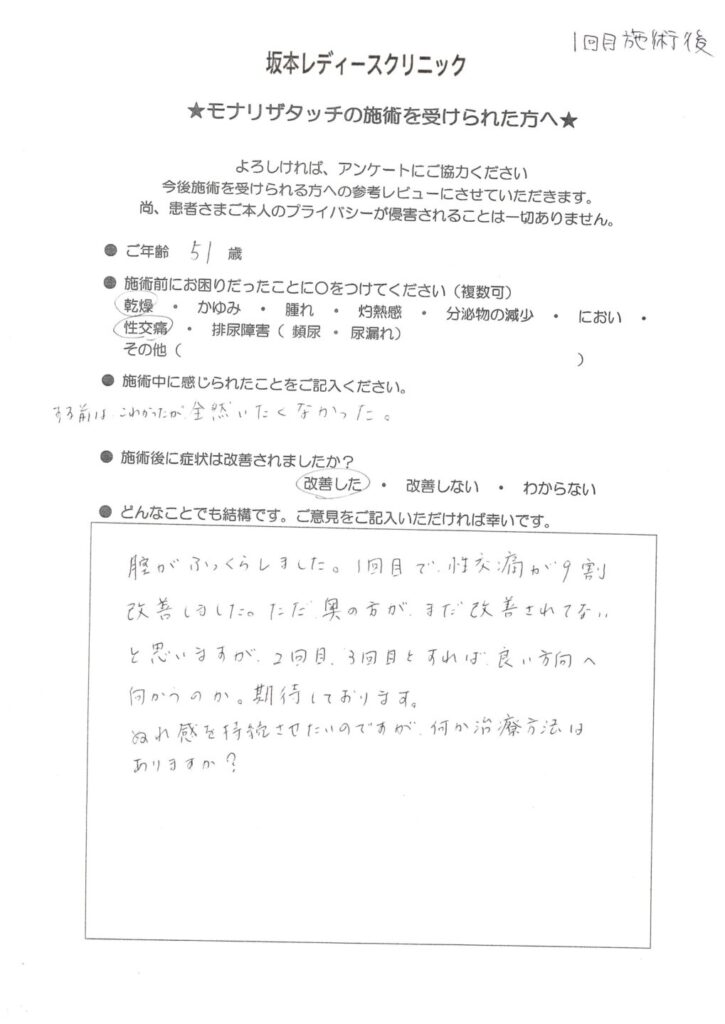 1回目施術後
坂本レディースクリニック
★モナリザタッチの施術を受けられた方へ★
よろしければ、アンケートにご協力ください
今後施術を受けられる方への参考レビューにさせていただきます。
尚、患者さまご本人のプライバシーが侵害されることは一切ありません。
● ご年齢 51 歳
● 施術前にお困りだったことに〇をつけてください（複数可）
乾燥 ・ かゆみ ・ 腫れ ・ 灼熱感 ・ 分泌物の減少 ・ におい ・
性交痛 ・ 排尿障害（ 頻尿 ・ 尿漏れ）
その他（ ）
● 施術中に感じられたことをご記入ください。
する前は、こわかったが、全然いたくなかった。
● 施術後に症状は改善されましたか？
改善した ・ 改善しない ・ わからない
● どんなことでも結構です。ご意見をご記入いただければ幸いです。
膣がふっくらしました。1回目で、性交痛が9割
改善しました。ただ、奥の方が、まだ改善されてない
と思いますが、2回目、3回目とすれば、良い方向へ
向かうのか。期待しております。
ぬれ感を持続させたいのですが、何か治療方法は
ありますか？